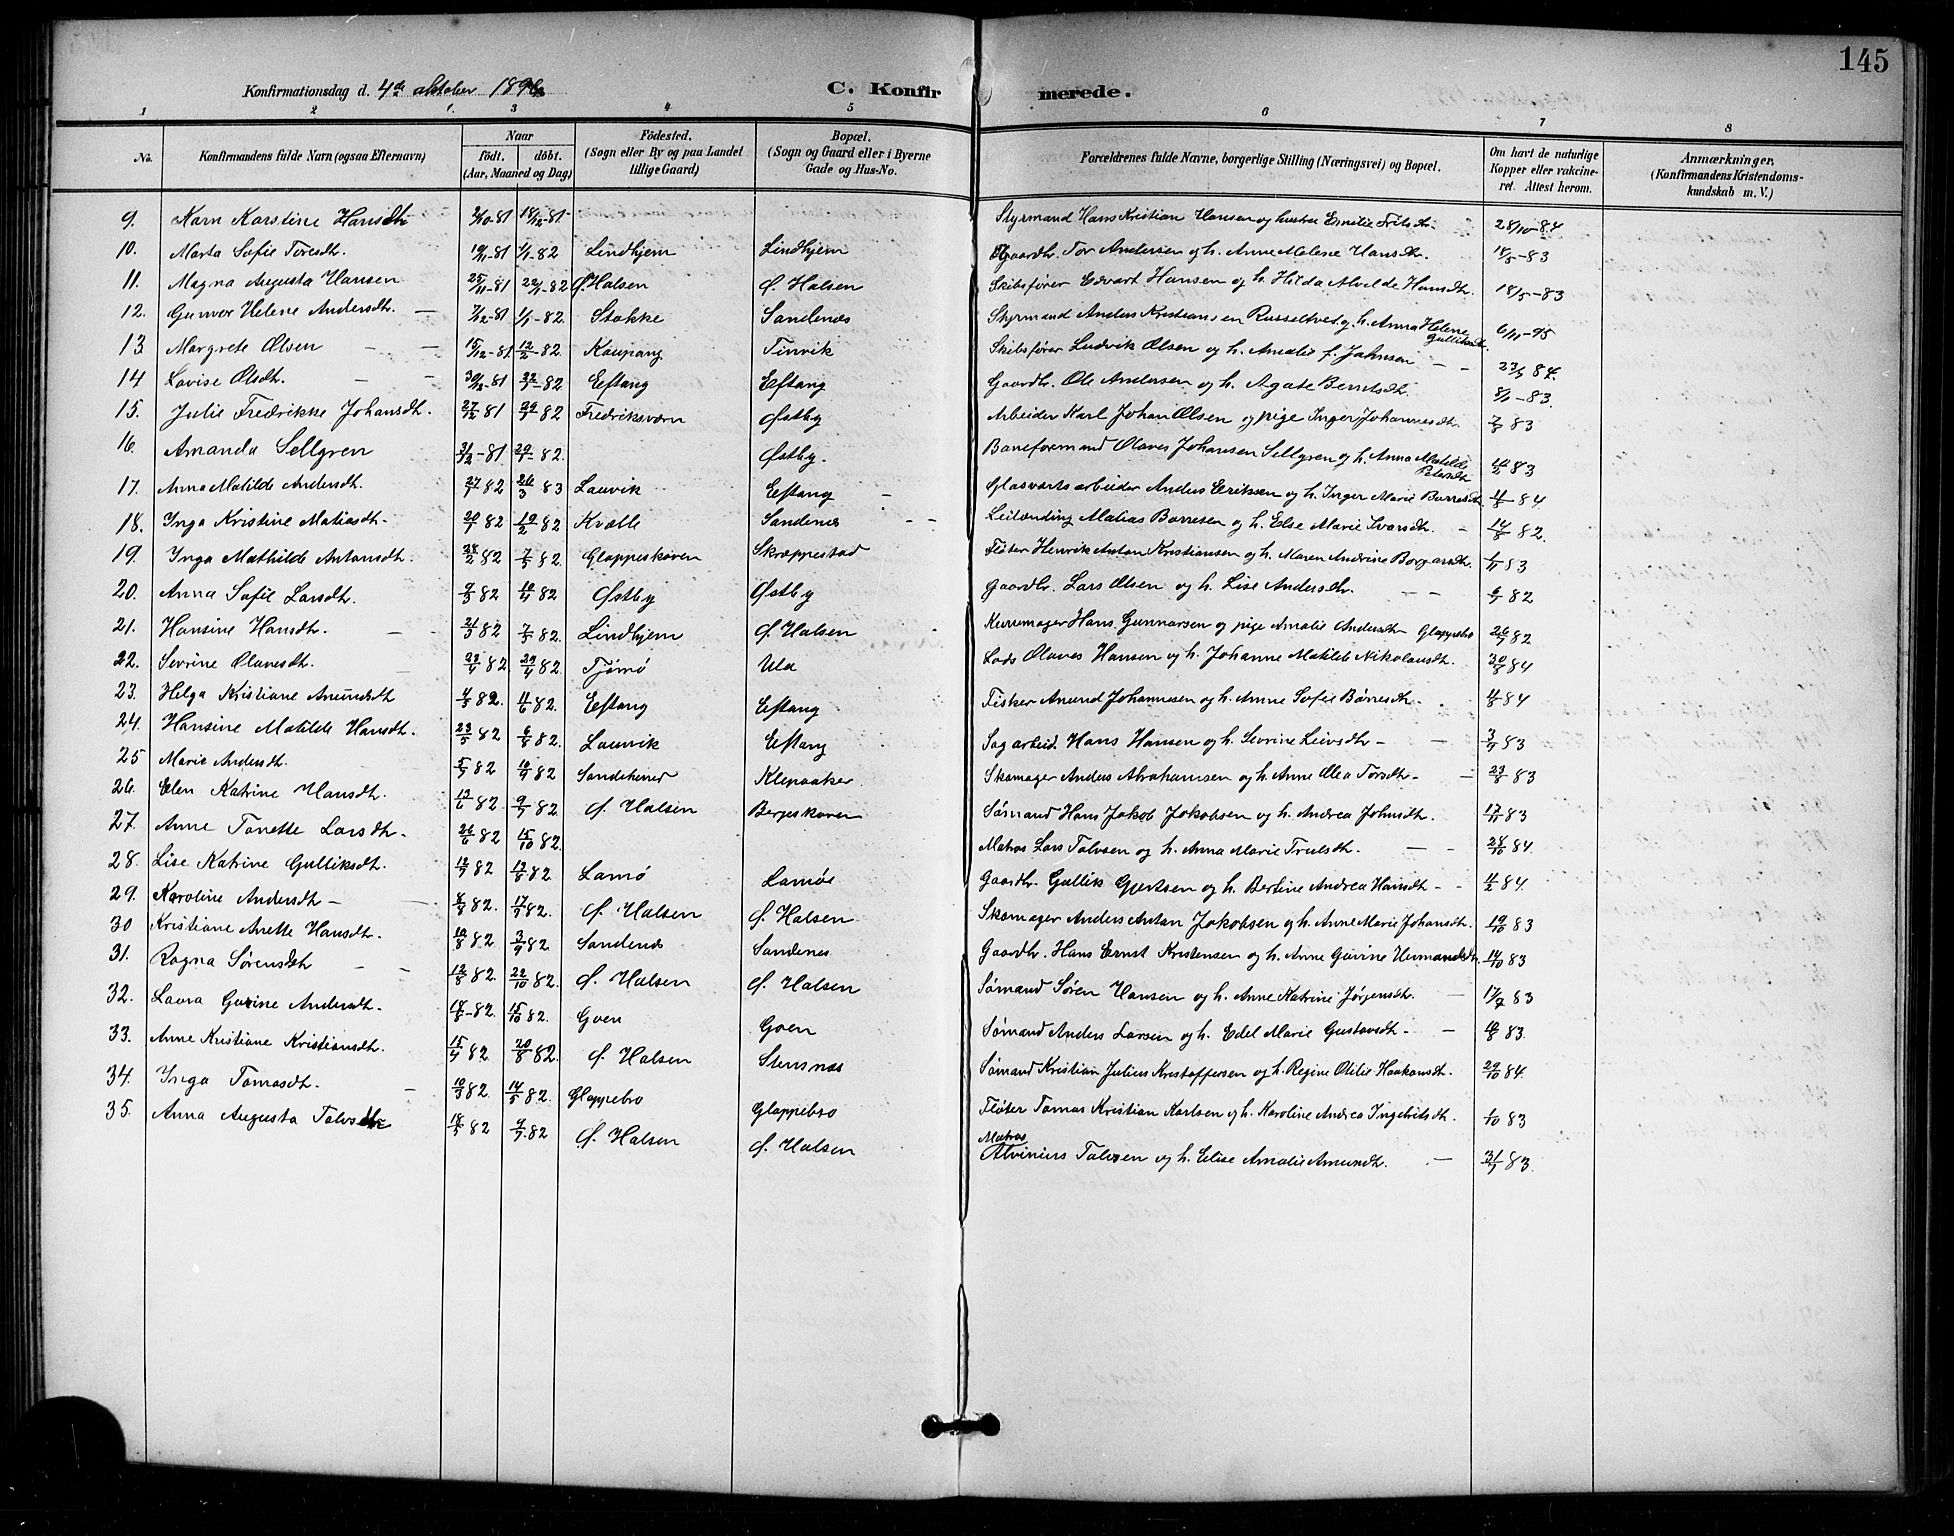 145
Konfirmationsdag d. 4de oktober 1896
C. Konfirmerede.
1 2 3 4 5 6 7 8
No.
Konfirmandens fulde Navn (ogsaa Efternavn)
Naar
födt. döbt.
(Aar, Maaned og Dag)
Födested.
(Sogn eller By og paa Landet
tillige Gaard)
Bopæl.
(Sogn og Gaard eller i Byerne
Gade og Hus-No.
Forældrenes fulde Navne, borgerlige Stilling (Næringsvei) og Bopæl.
Om havt de naturlige
Kopper eller vakcine-
ret. Attest herom.
Anmærkninger,
(Konfirmandens Kristendoms-
kundskab m. V.)
9. Karn Karstine Hansdt 2/10-81 18/12-81 Styrmand Hans Kristian Hansen og hustru Emilie 28/10-84
10. Marta Sofie Toresdt. 19/11-81 1/1-82 Lindhjem Lindhjem Gaardbr. Tor Andersen og h. Anne Malene Hansdt. 18/5-83
11. Magna Augusta Hansen 25/11-81 22/1-82 Ø. Halsen Ø. Halsen Skibsfører Edvart Hansen og h. Hilda Alvilde Hansdt. 18/5-83
12. Gunvor Helene Andersdt. 7/12-81 1/1-82. Stokke Sandenæs Styrmand Anders Kristiansen Russeltvet og h. Anna Helene Gulliksdt. 6/11-95
13 Margrete Olsen 15/12-81 12/2-82. Kaupang Tinvik Skibsfører Ludvik Olsen og h. Amalie f. Johnsen 84.
14 Lovise Olsdt. 30/12-81 22/1-82 Eftang Eftang Gaardbr. Ole Andersen og h. Agate Berntsdt. 83.
15. Julie Fredrikke Johansdt. 27/12 81 82 Fredriksværn Østby Arbeider Karl Johan Olsen og pige Inger Johannesdt. 83
16. Amanda Sellgren 31/12-81 82. Østby. Baneformand Olaves Johansen Sellgren og h. Anna Matilde Petersdt 83
17. Anna Matilde Andersdt. 27/1 82 26/3 83 Lauvik Eftang Glasværksarbeider Anders Eriksen og h. Inger Marie Borresdt 84.
18. Inga Kristine Matiasdt. 20/1 82 19/2 82 Kvælle Sandenæs Leilænding Matias Borresen og h. Else Marie Ivarsdt. 82.
19. Inga Mathilde Antonsdt. 28/2 82 7/5 82. Gloppeskoven Skreppestad Fløter Henrik Anton Kristiansen og h. Maren Andrine Borgarsdt. 83
20. Anna Sofie Larsdt. 9/3 82 82 Østby Østby Gaardbr. Lars Olsen og h. Lise Andersdt. 82
21. Hansine Hansdt. 21/3 82 7/5 82. Lindhjem Ø. Halsen Kurvmager Hans Gunnarsen og pige Amalie Andersdt Gloppebro 82
22. Sevrine Olavesdt. 82 82. Tjømø Ula Lods Olaves Hansen og h. Johanne Matilde Nikolausdt. 84
23. Helga Kristiane Anundsdt 4/5 82. 4/6 82. Eftang Eftang Fisker Anund Johannesen og h. Anne Sofie Børresdt. 84
24. Hansine Matilde Hansdt. 23/5 82 6/8 82. Lauvik Eftang Sagarbeid. Hans Hansen og h. Sevrine Leivsdt 83
25 Marie Andersdt. 82 82 Sandeherred Klepaaker Skomager Anders Abrahamsen og h. Anne Olea Torsdt 23/8 83
26. Elen Katrine Hansdt. 13/6 82. 9/7 82. Ø. Halsen Bergeskoven Sømand Hans Jakob Jakobsen og h. Andrea Johnsdt. 83
27. Anne Tonette Larsdt. 26/6 82 15/10 82. Matros Lars Tolvsen og h. Anna Marie Trulsdt. 84.
28. Lise Katrine Gulliksdt. 82 82 Lamø Lamøe Gaardbr. Gullik Gjertsen og h. Bertine Andrea Hansdt 84.
29. Karoline Andersdt 82. 82. Ø. Halsen Ø. Halsen Skomager Anders Anton Jakobsen og h. Anne Marie Johansdt. 19/10 83
30 Kristiane Anette Hansdt. 82 3/9 82 Sandenæs Sandenes Gaardbr. Hans Ernst Kristensen og h. Anne Gurine Hermandsdt. 83
31. Ragna Sørensdt 82 22/10 82. Ø. Halsen Ø. Halsen Sømand Søren Hansen og h. Anne Katrine Jørgensdt. 83
32. Laura Gurine Andersdt. 82. 15/10 82. Goen Goen Sømand Anders Larsen og h. Edel Marie Gustavsdt 83.
33. Anne Kristiane Kristiansdt. 15/4 82 20/8 82. Ø. Halsen Stensnæs Sømand Kristian Julius Kristoffersen og h. Regine Otilie Haakonsdt. 29/10 84.
34. Inga Tomasdt. 82. 14/5 82. Gloppebro Gloppebro Fløter Tomas Kristian Karlsen og h. Karoline Andrea Ingebritsdt. 1/10 83
35. Anna Augusta Tolvsdt 82 82 Ø. Halsen Ø. Halsen Matros Alvinius Tolvsen og h. Elise Amalie Amundsdt. 83.